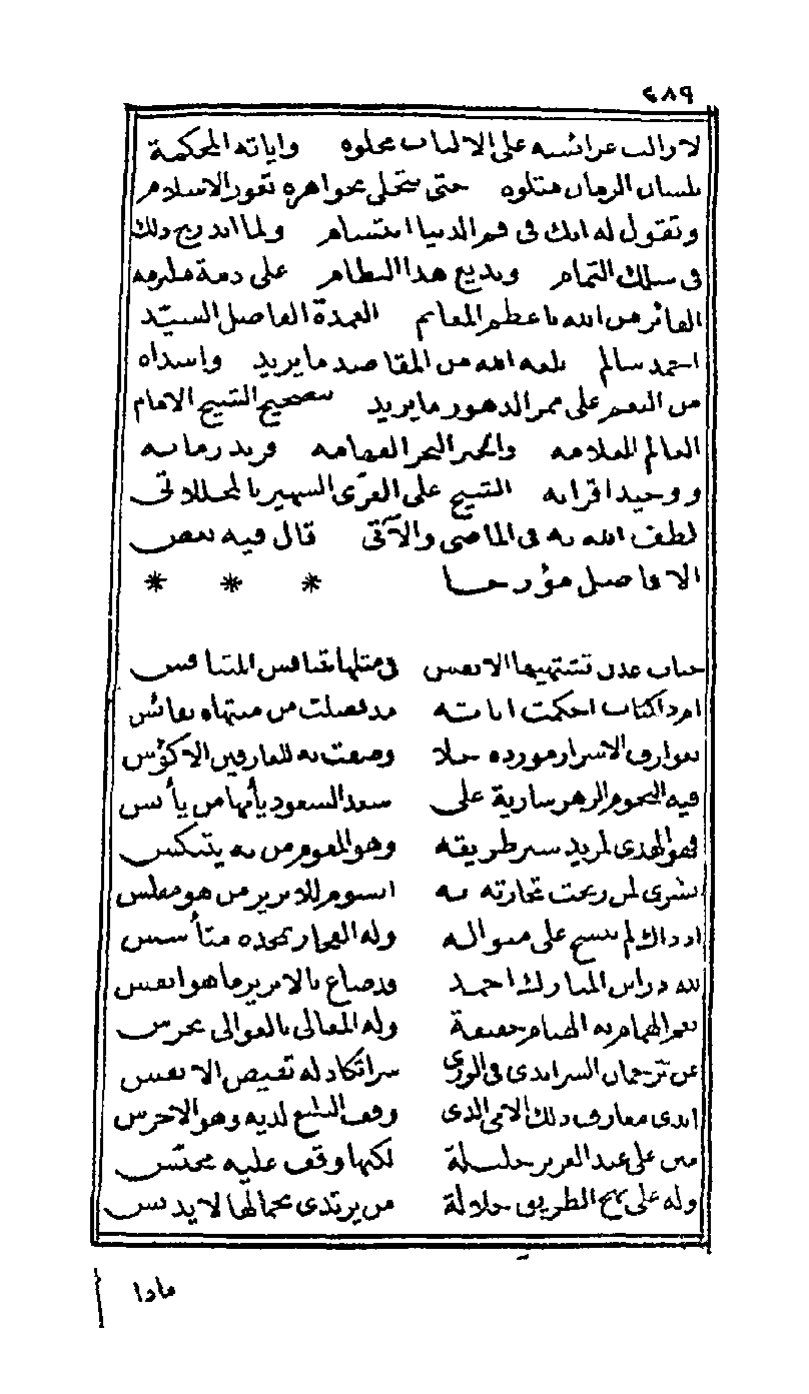 ٤٨٩
لا زالت عرائسه على الالباب مجلوه واياته المحكمة
بلسان الزمان متلوه حتى تتحلى بجواهره ثغور الاسلام
وتقول له انك في فم الدنيا ابتسام ولما اندرج ذلك
في سلك التمام وبديع هذا النظام على ذمة ملتزمه
الفائز من الله باعظم المغانم العمدة الفاضل السيد
احمد سالم بلغه الله من المقاصد ما يريد واسداه
من النعم على ممر الدهور ما يريد بتصحيح الشيخ الامام
العالم العلامه والحبر البحر الفهامه فريد زمانه
ووحيد اقرانه الشيخ على الغزى الشهير بالمخللاتى
لطف الله به فى الماضى والآتى قال فيه بعض
الافاضل مؤرخا * * *
جنات عدن تشتهيها الانفس في مثلها يتنافس المتنافس
ام ذا كتاب احكمت اياته مذ فصلت من منتهاه نفائس
بعوارف الاسرار مورده حلا وصفت به للعارفين الاكؤس
فيه النجوم الزهر سارية على سعد السعود يأمها من يأنس
فهو الهدى لمريد سير طريقه وهو المقوم من به يتنكس
بشرى لمن ربحت تجارته به ايسوم للابريز من هو مفلس
اذ ذاك لم ينسج على منواله وله الفخار بمجده متأسس
لله در ابن المبارك احمد قد صاغ بالابريز ما هو انفس
نعم الهمام به الهيام حقيقة وله المعالى بالعوالى تحرس
عن ترجمان السر ابدى فى الورى سرا تكاد له تفيض الانفس
ابدى معارف ذلك الامى الذى وقف البليغ لديه وهو الاخرس
منن على عبد العزيز جليلة لكنها وقف عليه محبس
وله على نهج الطريق جلالة من يرتدى بجمالها لا يدنس
ماذا